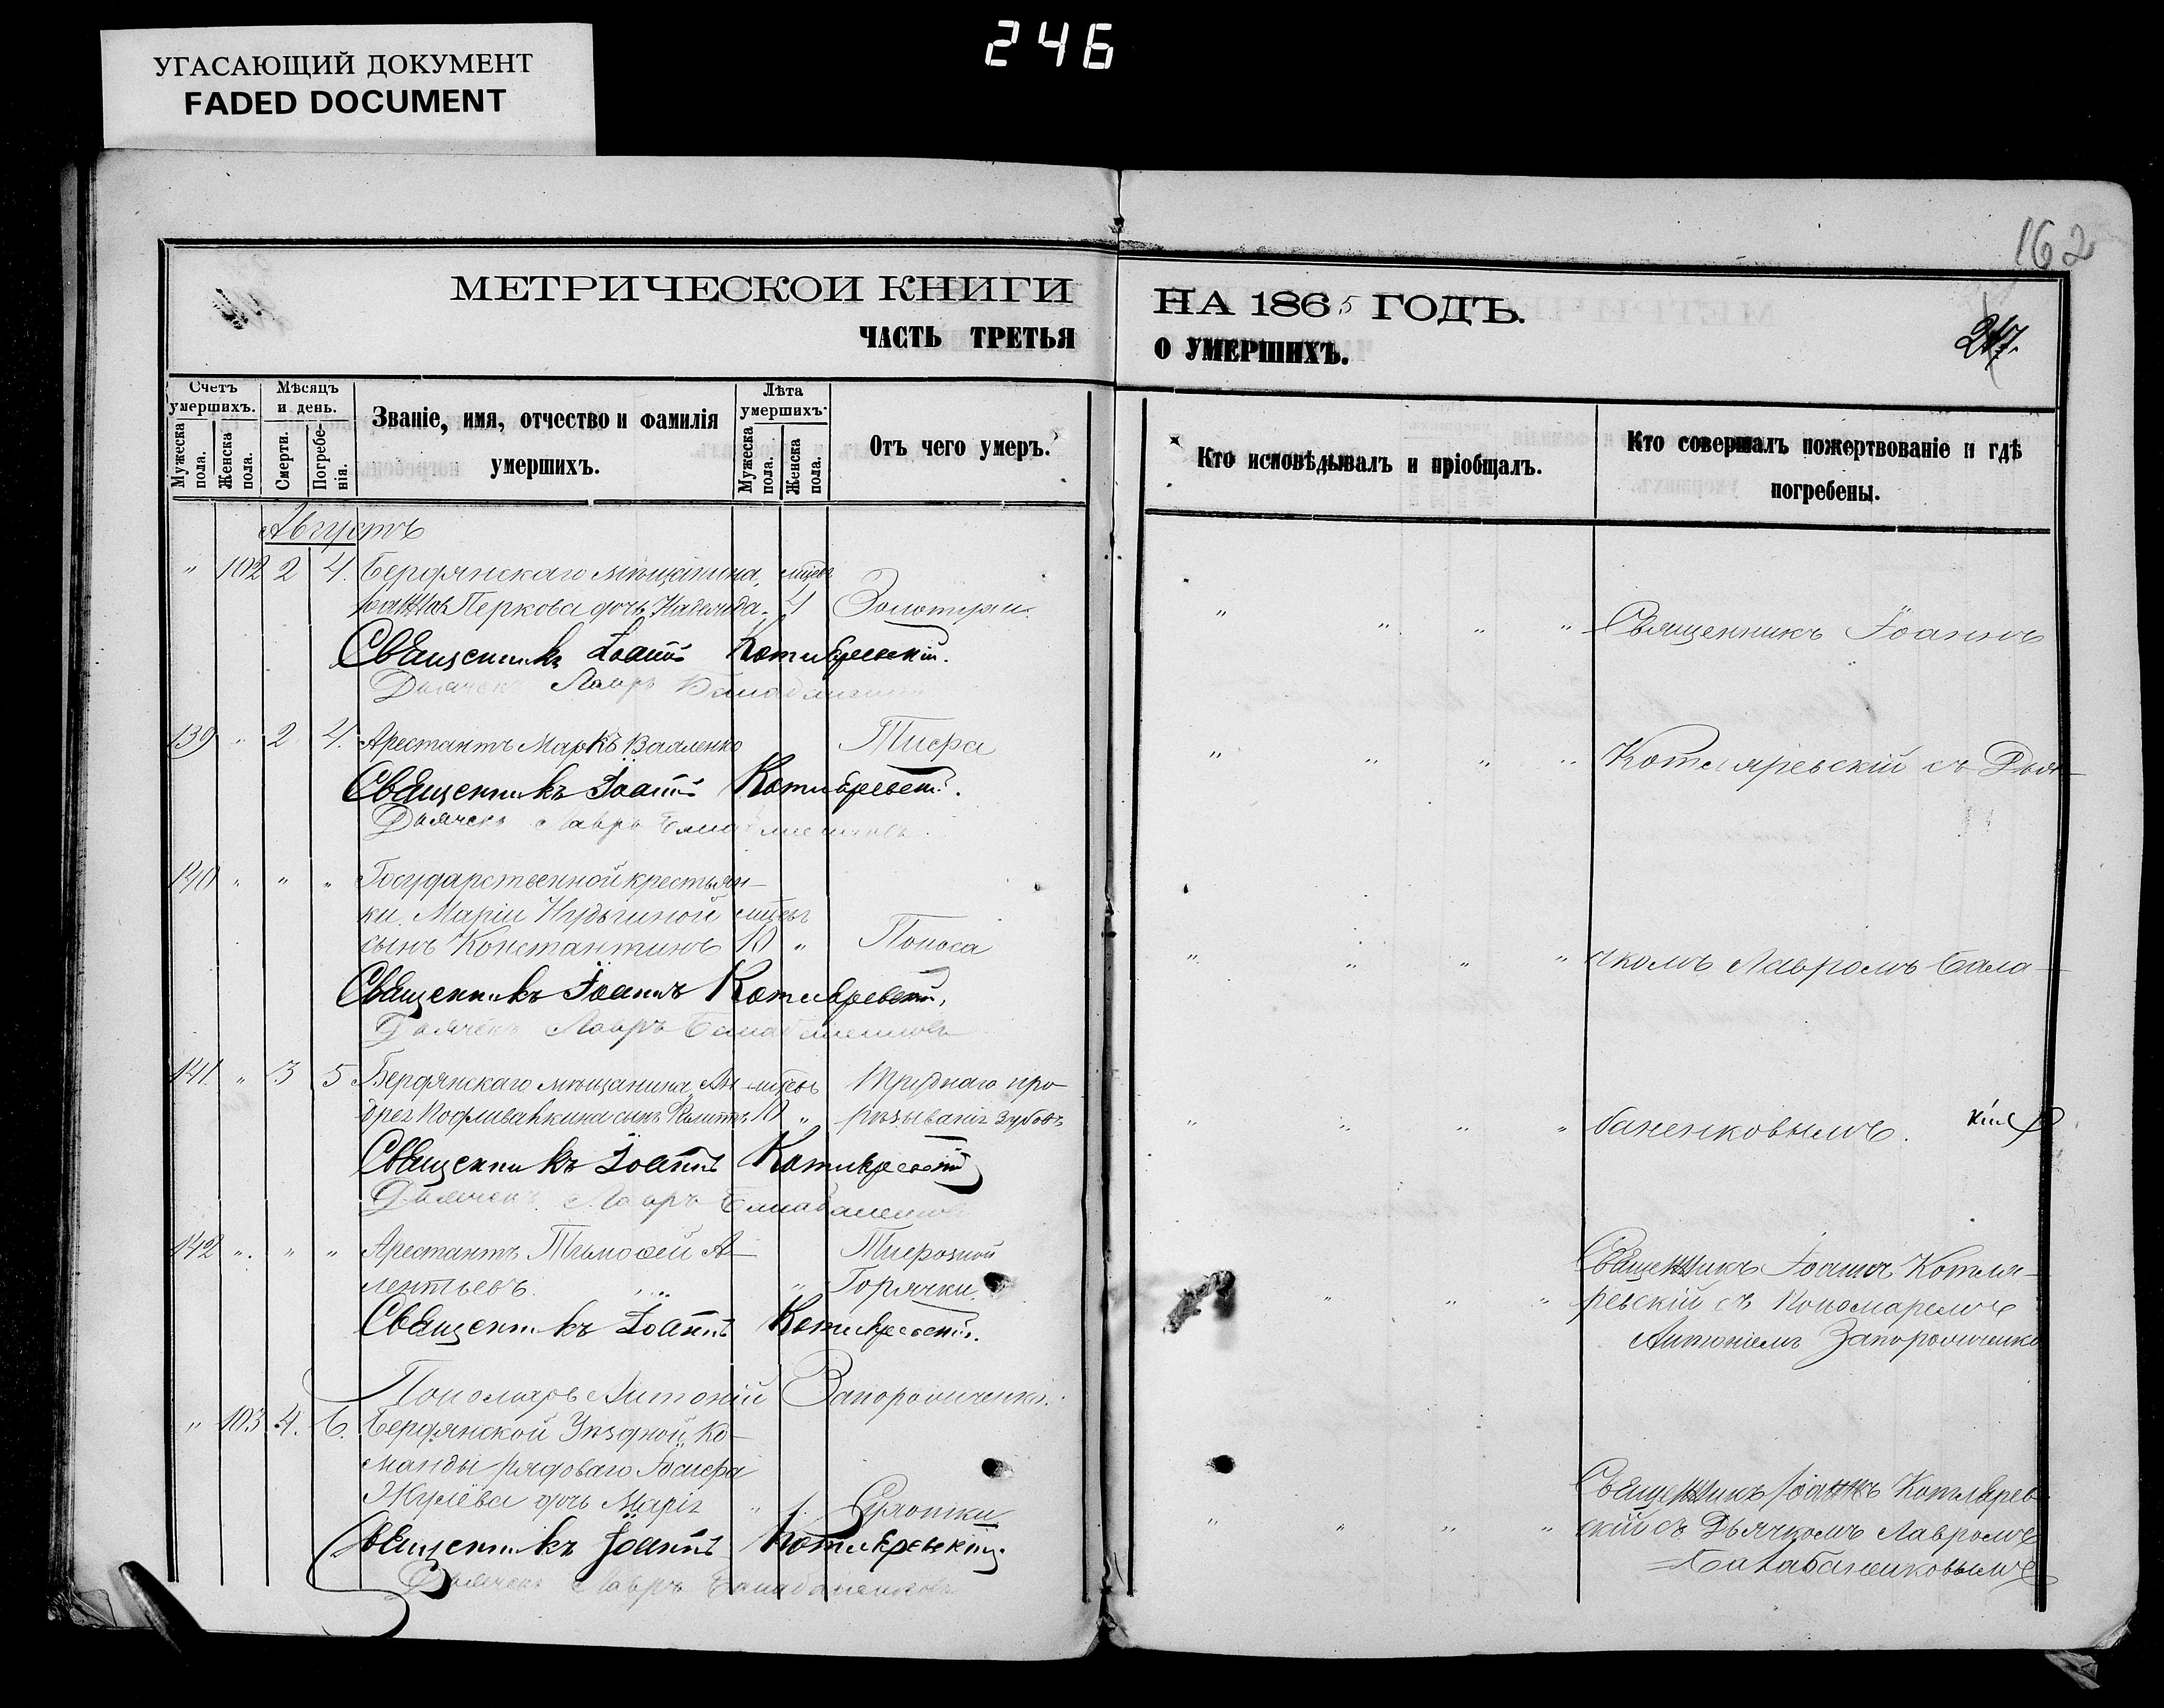 246
УГАСАЮЩИЙ ДОКУМЕНТ
FADED DOCUMENT
162
МЕТРИЧЕСКОЙ КНИГИ
ЧАСТЬ ТРЕТЬЯ
НА 1865 ГОДЪ.
О УМЕРШИХЪ.
247.
Счетъ умершихъ.
Мужеска пола.
Женска пола.
Мѣсяцъ и день.
Смерти.
Погребенія.
Званіе, имя, отчество и фамилія
умершихъ.
Лѣта умершихъ.
Мужеска пола.
Женска пола.
Отъ чего умеръ.
Кто исповѣдывалъ и пріобщалъ.
Кто совершалъ пожертвованіе и гдѣ
погребены.
Августъ
" 102 2 4. Бердянскаго мѣщанина, мѣсец
Перкова дочь Надежда. 4 Золотухи.
Священникъ Іоаннъ Котляревскій.
Дьячекъ Лавръ Балабаненковъ
" " " " Священникъ Іоаннъ
139 " 2 4. Арестантъ Маркъ Тифа
Священникъ Іоаннъ Котляревскій.
Дьячекъ Лавръ Балабаненковъ
" " " " Котляревскій съ Дья-
140 " " " Государственной крестьян-
ки Маріи мѣсец
сынъ Константинъ 10 " Поноса
Священникъ Іоаннъ Котляревскій,
Дьячекъ Лавръ Балабаненковъ
" " " " чкомъ Лавромъ Бала-
141. " 3 5 Бердянскаго мѣщанина Ан- мѣсец Труднаго про-
дрея сынъ 10 " рѣзыванія зубовъ
Священникъ Іоаннъ Котляревскій
Дьячекъ Лавръ Балабаненковъ
" " " " баненковымъ.
142 " " " Арестантъ Тимофей А- Тифозной
лентьевъ. " Горячки.
Священникъ Іоаннъ Котляревскій.
Пономарь Антоній Запорожченко.
Священникъ Іоаннъ Котля-
" " " ревскій съ Пономаремъ
Антоніемъ Запорожченко
" 103 4. 6. Бердянской Уѣздной Ко-
манды рядоваго Іосифа
Жулёва дочь Марія " 1. Сухотки
Священникъ Іоаннъ Котляревскій.
Дьячекъ Лавръ Балабаненковъ
Священникъ Іоаннъ Котлярев-
" " " " скій съ Дьячкомъ Лавромъ
Балабаненковымъ